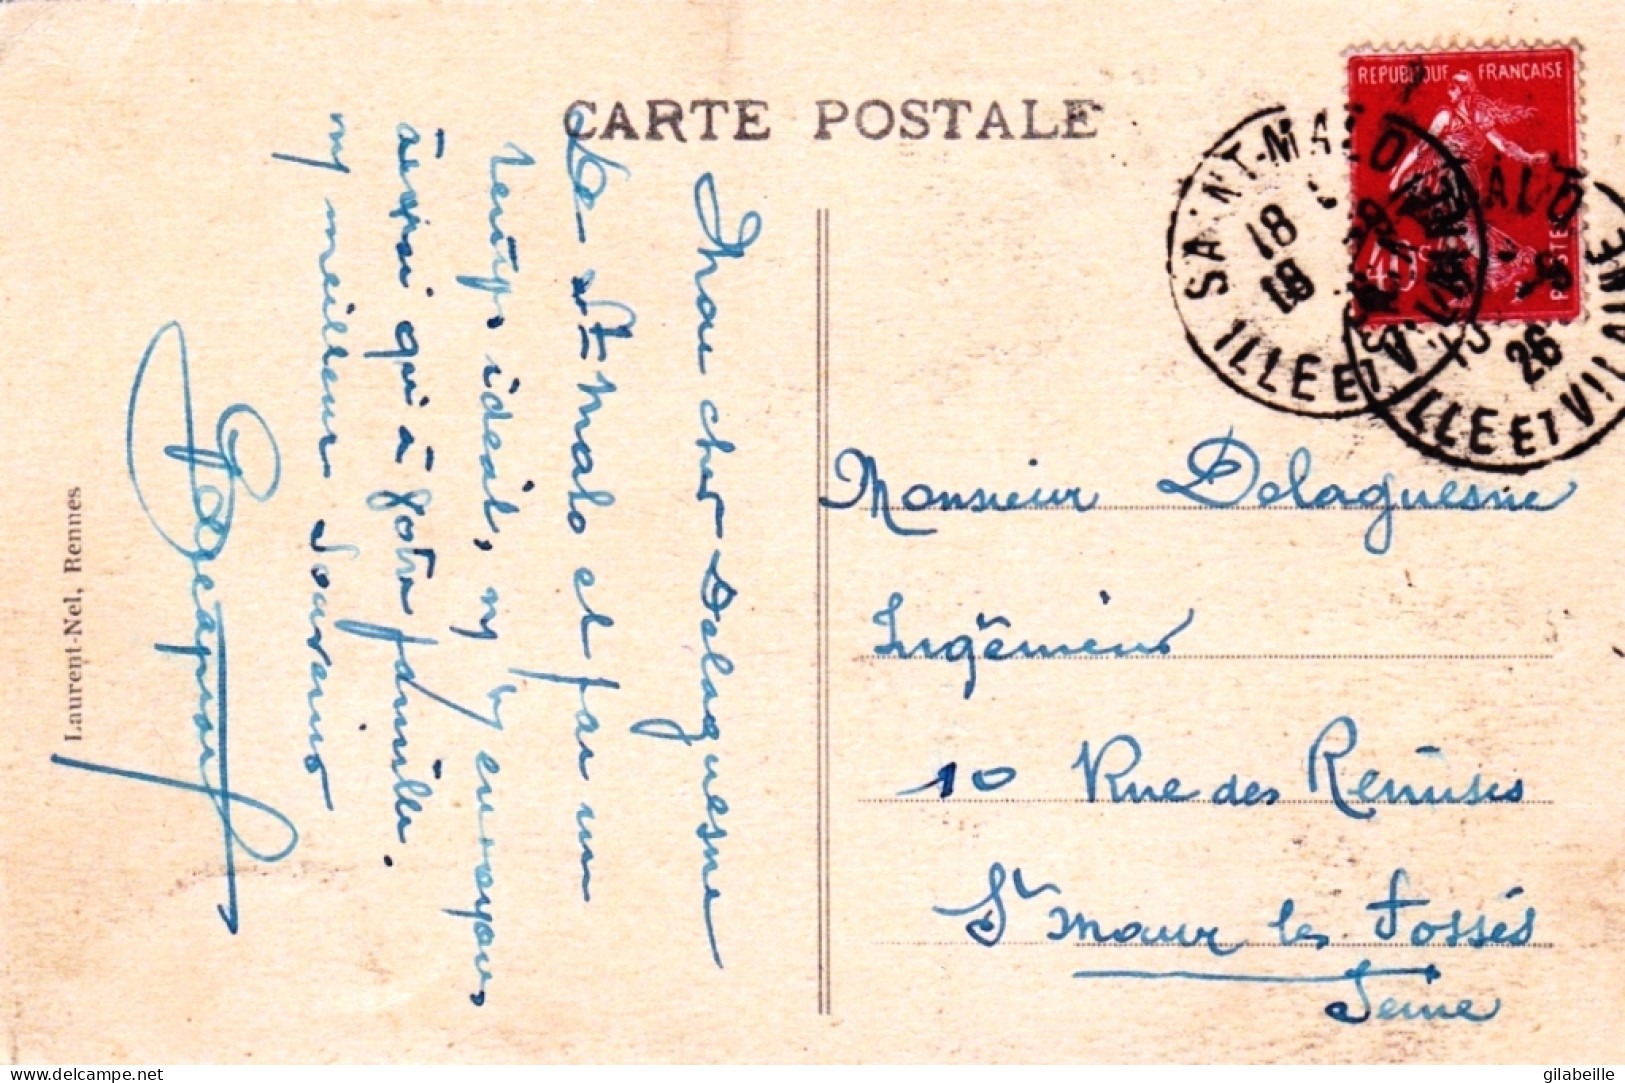 CARTE POSTALE
REPUBLIQUE FRANÇAISE
40c
POSTES
SAINT-MALO
18
ILLE ET VILAINE
26
ILLE ET VILAINE
Mon cher Delaguesne
De St Malo et par un
temps idéal, ns vs envoyons,
ainsi qu'à votre famille,
ns meilleurs souvenirs
Monsieur Delaguesne
Ingénieur
10 Rue des Remises
St Maur les Fossés
Seine
Laurent-Nel, Rennes
delcampe.net
gilabeille